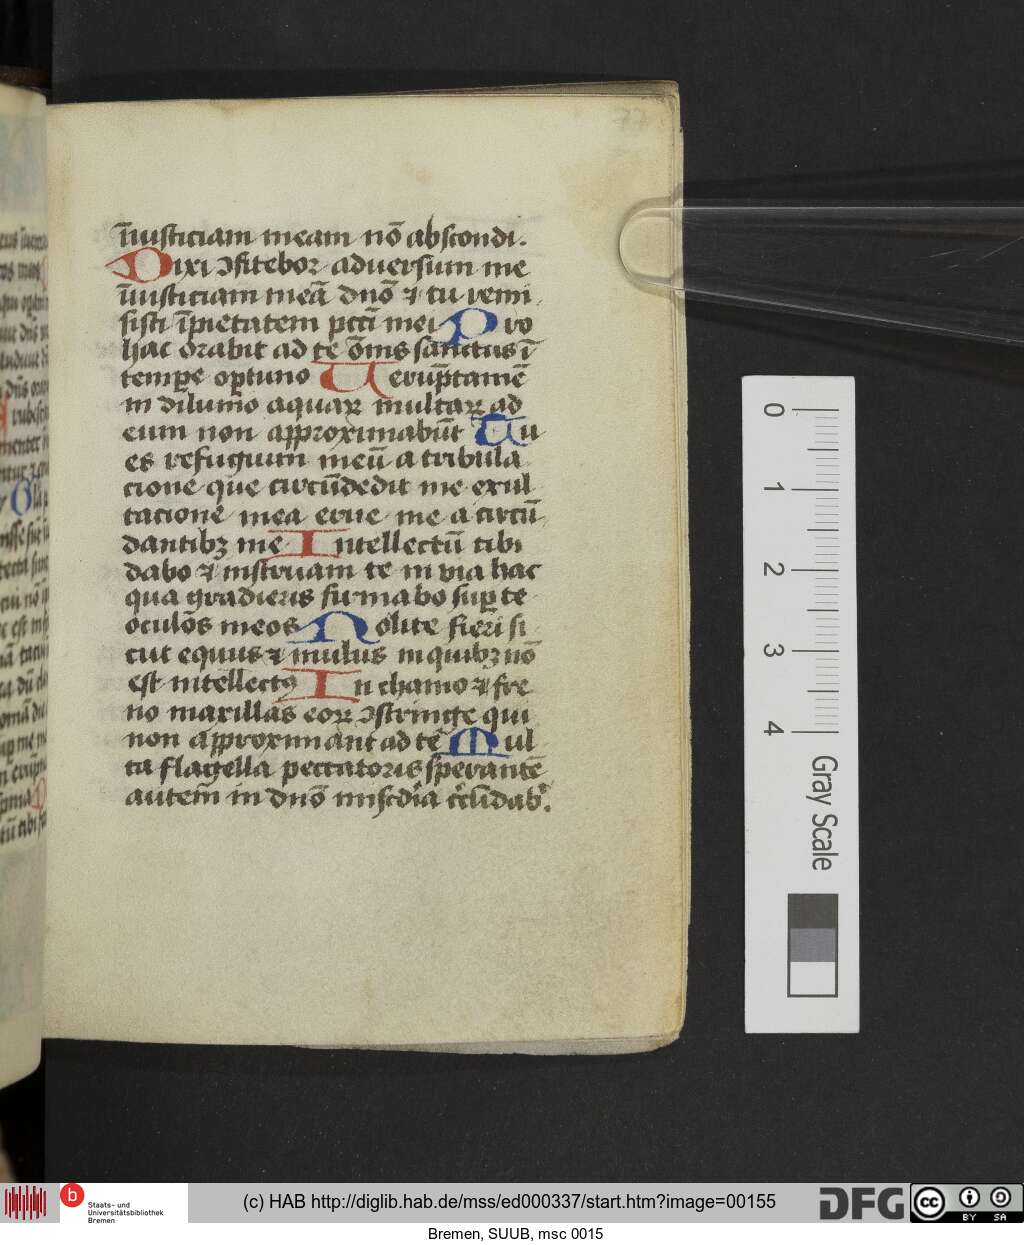 77
īiusticiam meam nō abscondi.
Dixi ↄfitebor aduersum me
īiusticiam meā dnō ⁊ tu remi
sisti īpietatem pctī mei Pro
hac orabit ad te ōmis sanctus ī
tempꝛe oꝑtuno Uerūptamē
in diluuio aquaꝝ multaꝝ ad
eum non approximabūt Tu
es refugium meū a tribula
cione que circūdedit me exul
tacione mea erue me a circū
dantibꝫ me Intellectū tibi
dabo ⁊ instruam te in via hac
qua gradieris firmabo suꝑ te
oculōs meos Nolite fieri si
cut equus ⁊ mulus in quibꝫ nō
est intellectꝰ In chamo ⁊ fre
no maxillas eoꝝ ↄstringe qui
non approximant ad te Mul
ta flagella peccatoris sperantē
autem in dnō miscdia cͥcūdabͭ.
0
1
2
3
4
Gray Scale
b Staats- und
Universitätsbibliothek
Bremen
(c) HAB http://diglib.hab.de/mss/ed000337/start.htm?image=00155
DFG
cc BY SA
Bremen, SUUB, msc 0015